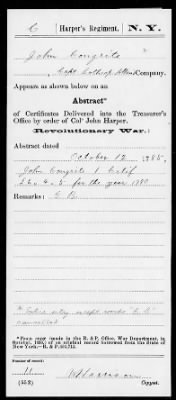 C | Harper's Regiment, | N. Y.
John Congrite
Capt. Lothrop Allen's Company.
Appears as shown below on an
Abstract*
of Certificates Delivered into the Treasurer's
Office by order of Col' John Harper.
(Revolutionary War.)
Abstract dated
October 12, 1785.
John Congrite 1 Certif
22. 4. 5 for the year 1780
Remarks:
cancelled
*From copy made in the R. & P. Office, War Department, in
of original record borrowed from the State of
New York.—R. & P.
Number of record:
11
(552) Copyist.